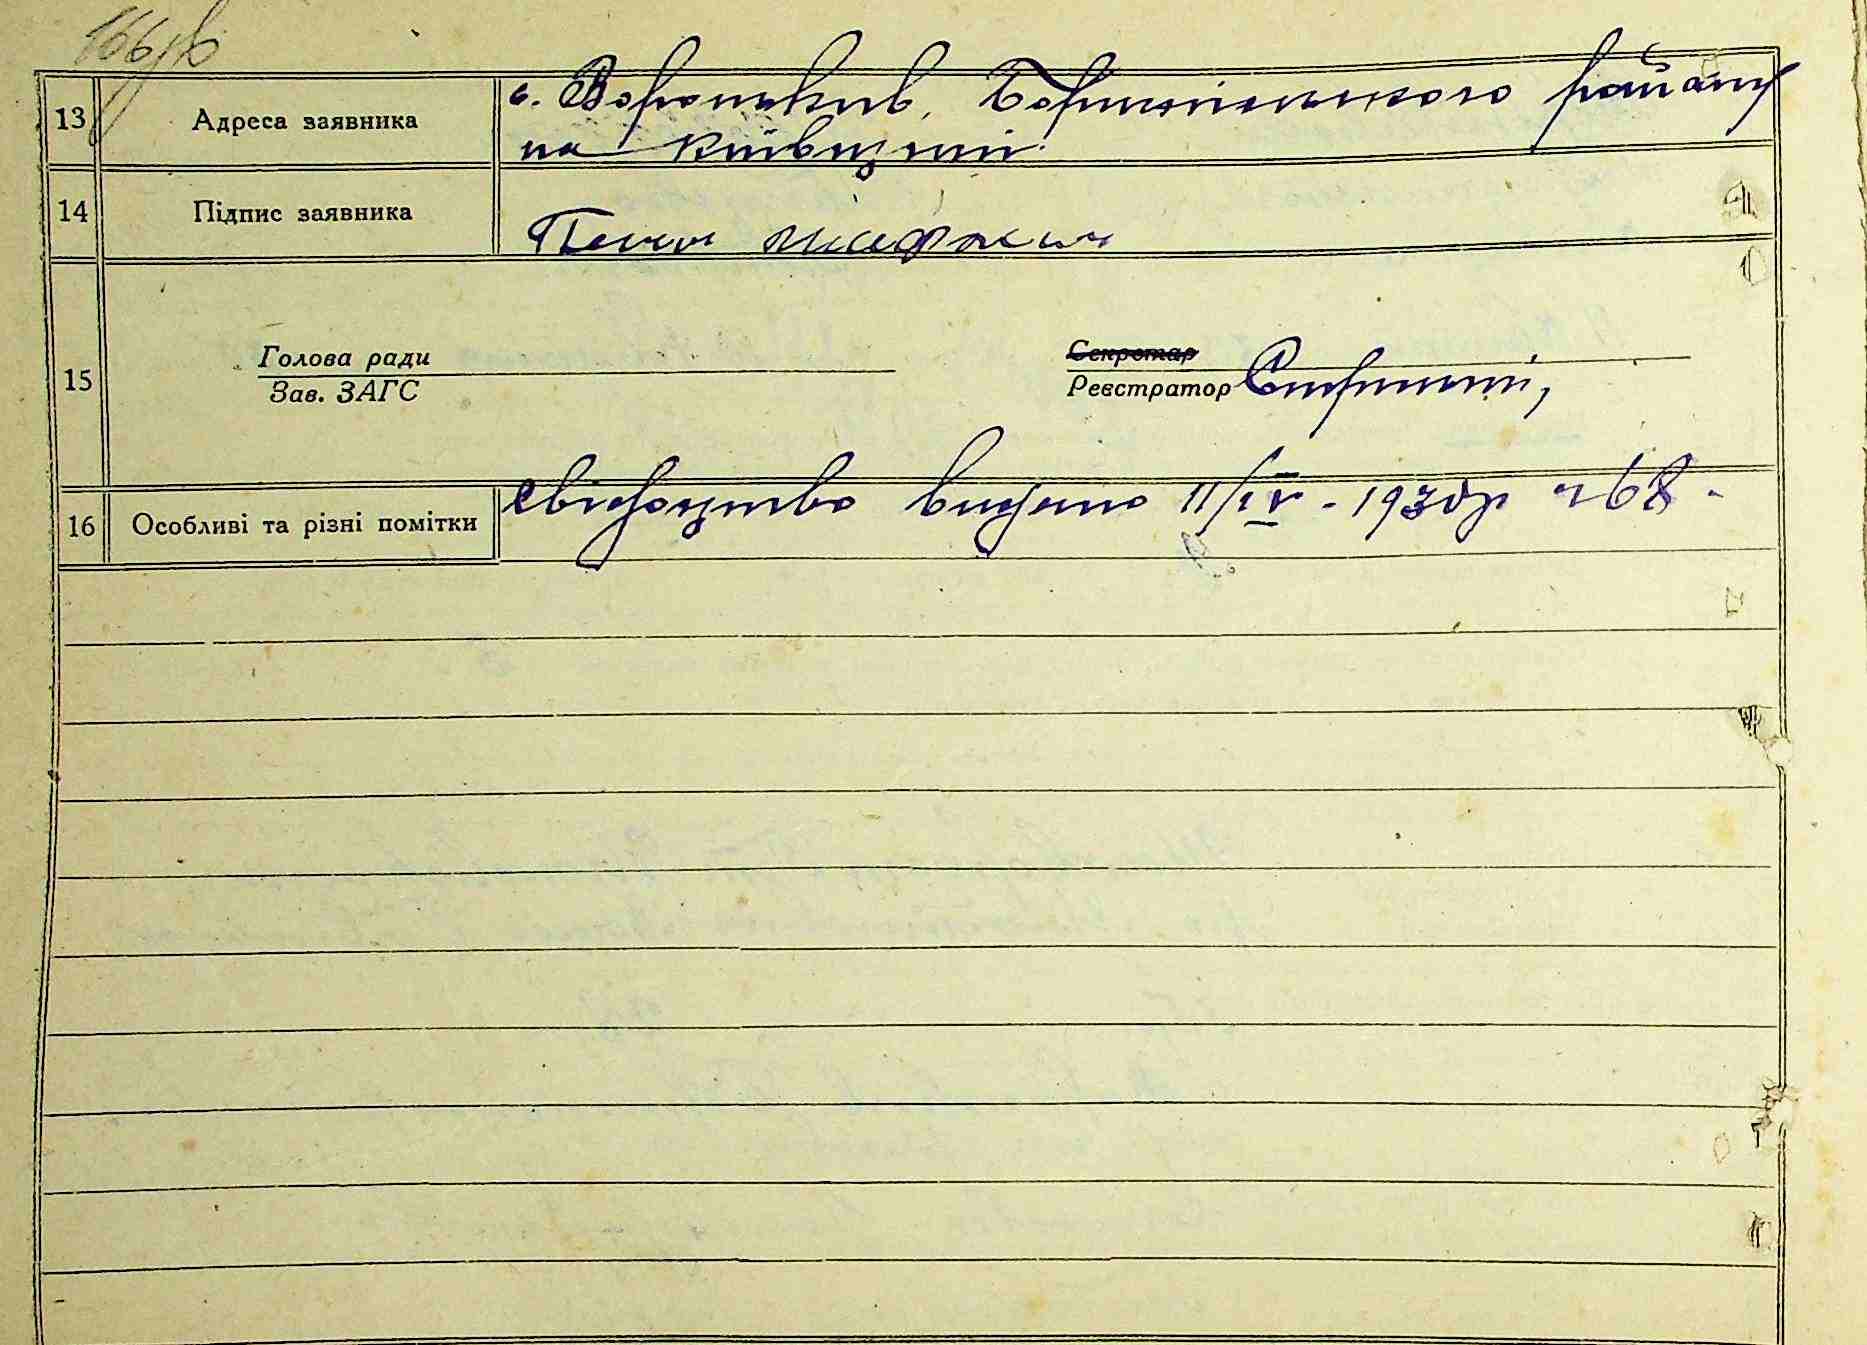 13 Адреса заявника с. Вороньків, Бориспільського району
на Київщині.
14 Підпис заявника
15 Голова ради
Зав. ЗАГС
Секретар
Реєстратор
16 Особливі та різні помітки свідоцтво видано 11/IV - 1930р ч 68 -